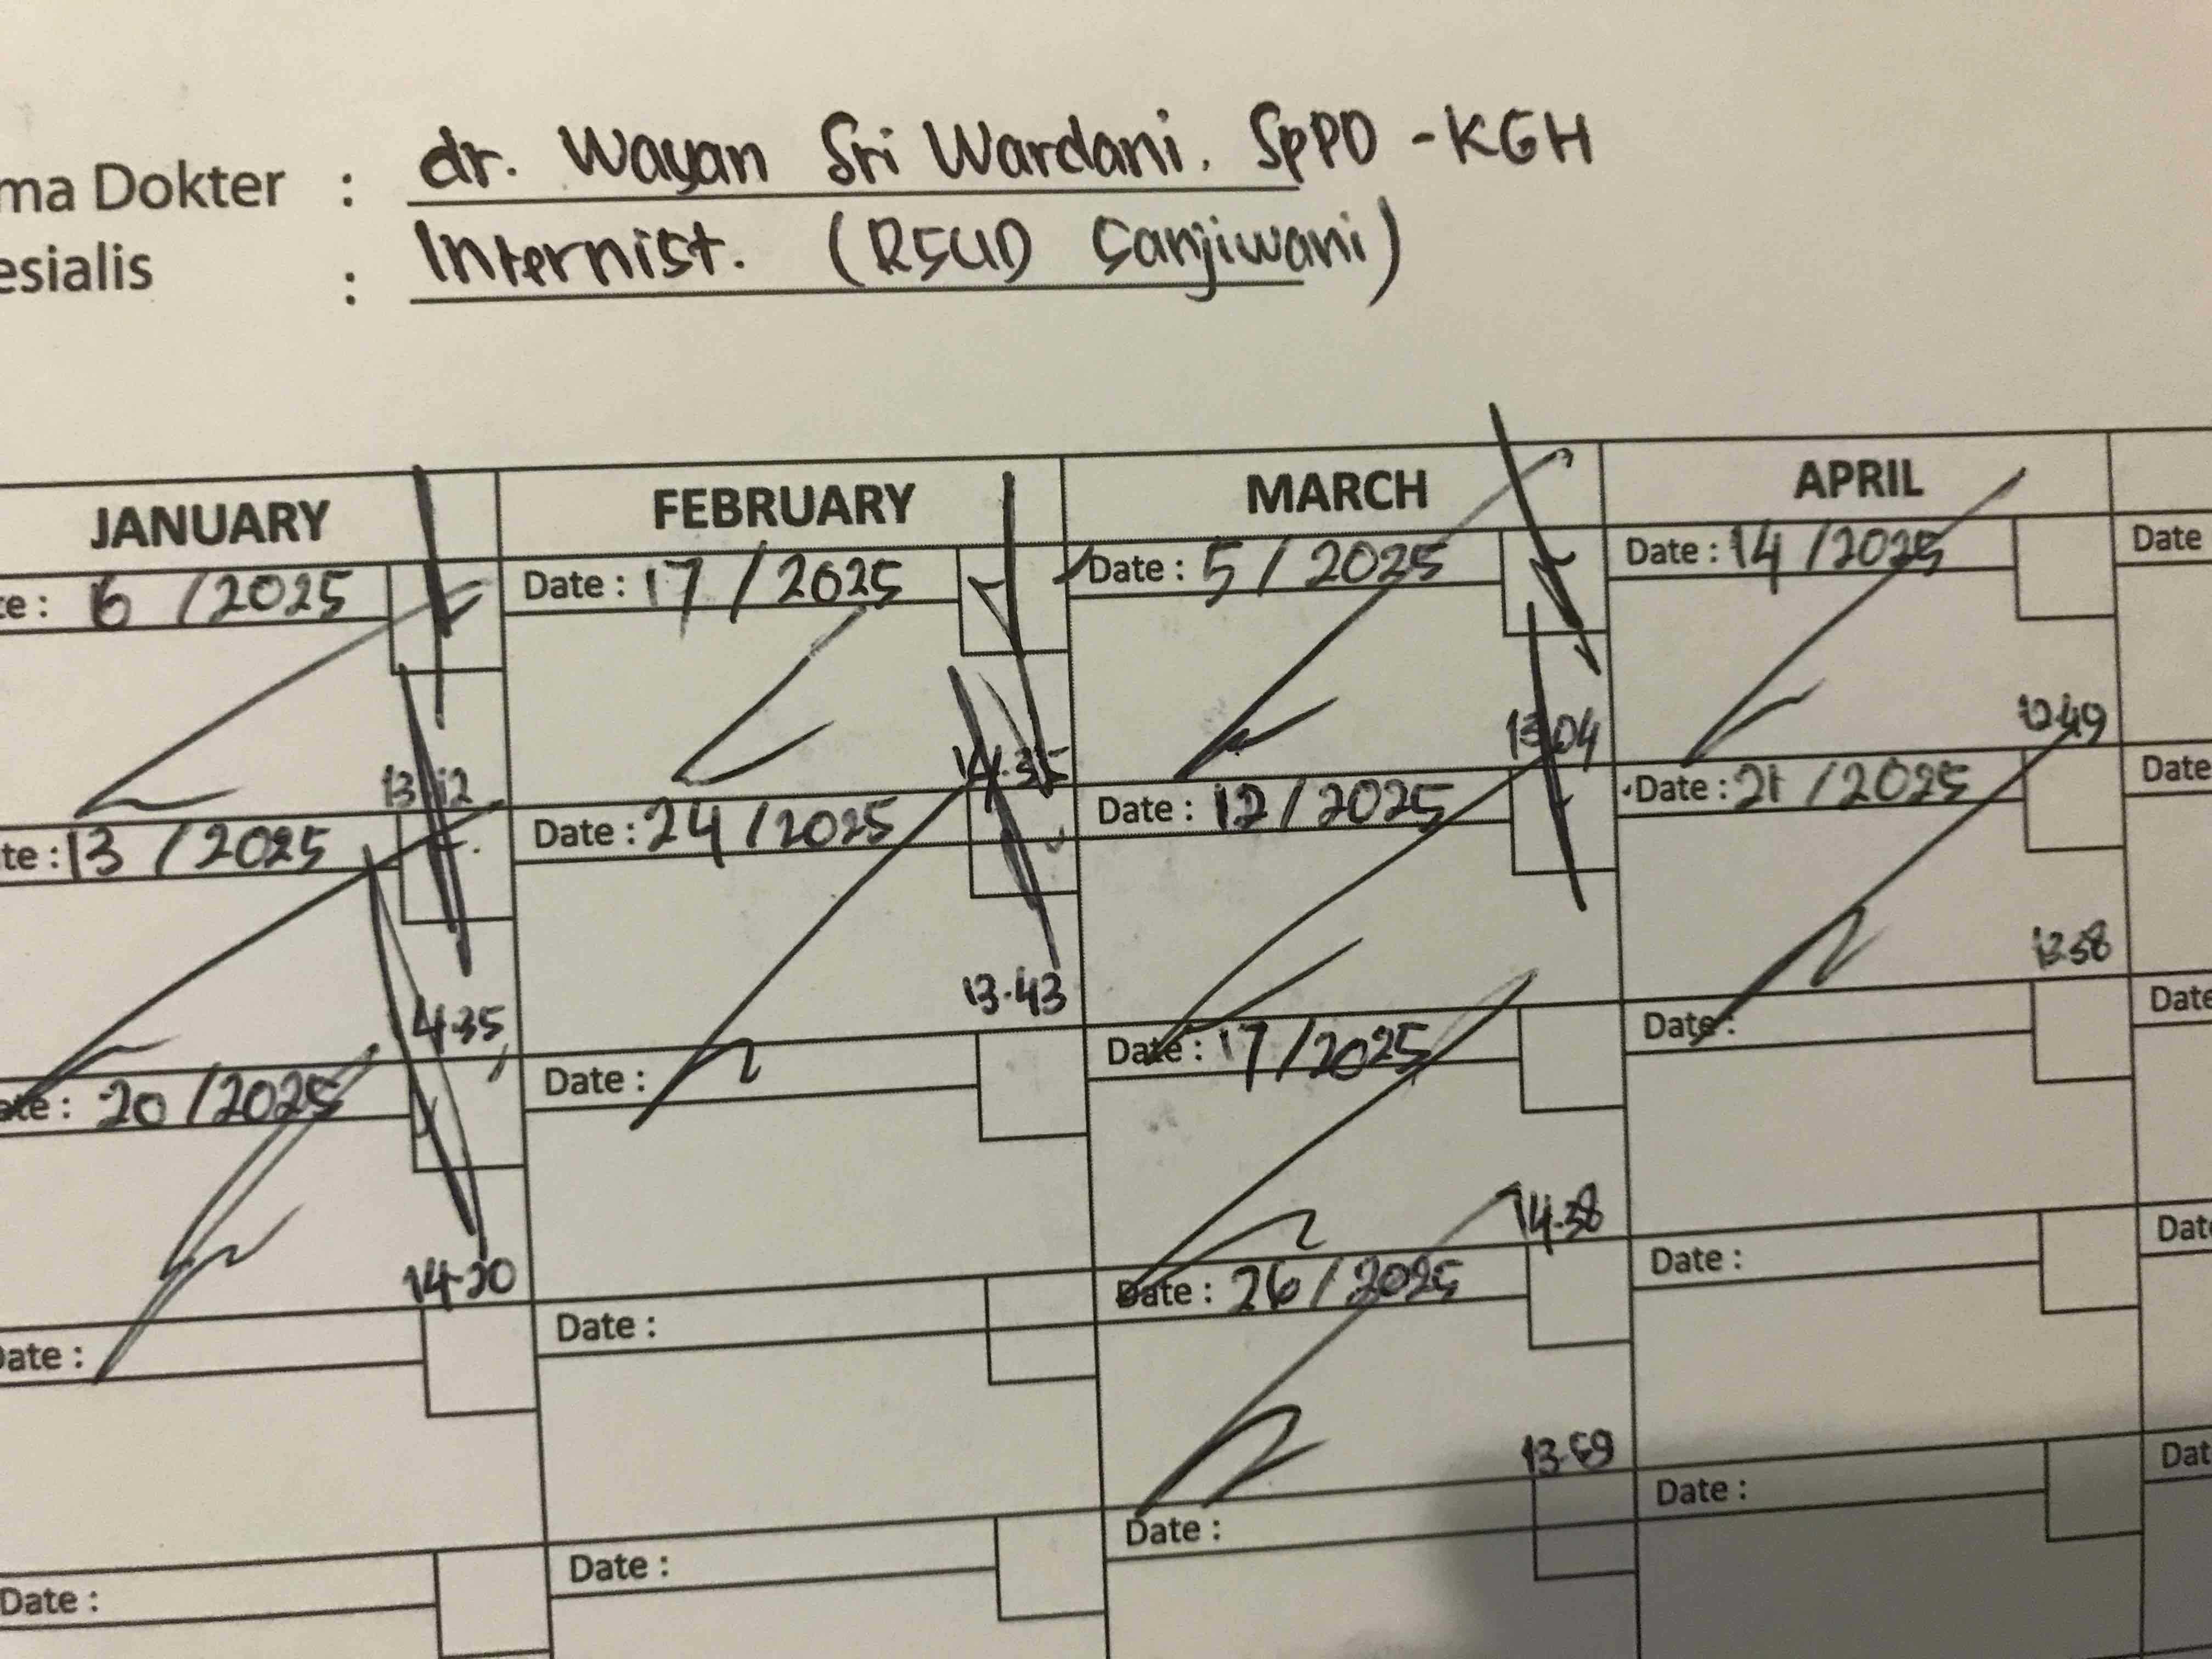 ma Dokter : dr. Wayan Sri Wardani. SpPD - KGH
esialis : Internist. (RSUD Sanjiwani)
JANUARY FEBRUARY MARCH APRIL
te : 6 /2025 Date : 17 / 2025 Date : 5 / 2025 Date : 14 /2025 Date
13 12 14.35 13 04 12.49
te : 13 / 2025 Date : 24 /2025 Date : 12 / 2025 Date : 21 / 2025 Date
14.35 13.43 13.58
ate : 20 /2025 Date : Date : 17 /2025 Date : Date
14.20 14.38
Date : Date : Date : 26 / 2025 Date : Dat
13.59
Date : Date : Date : Date : Dat